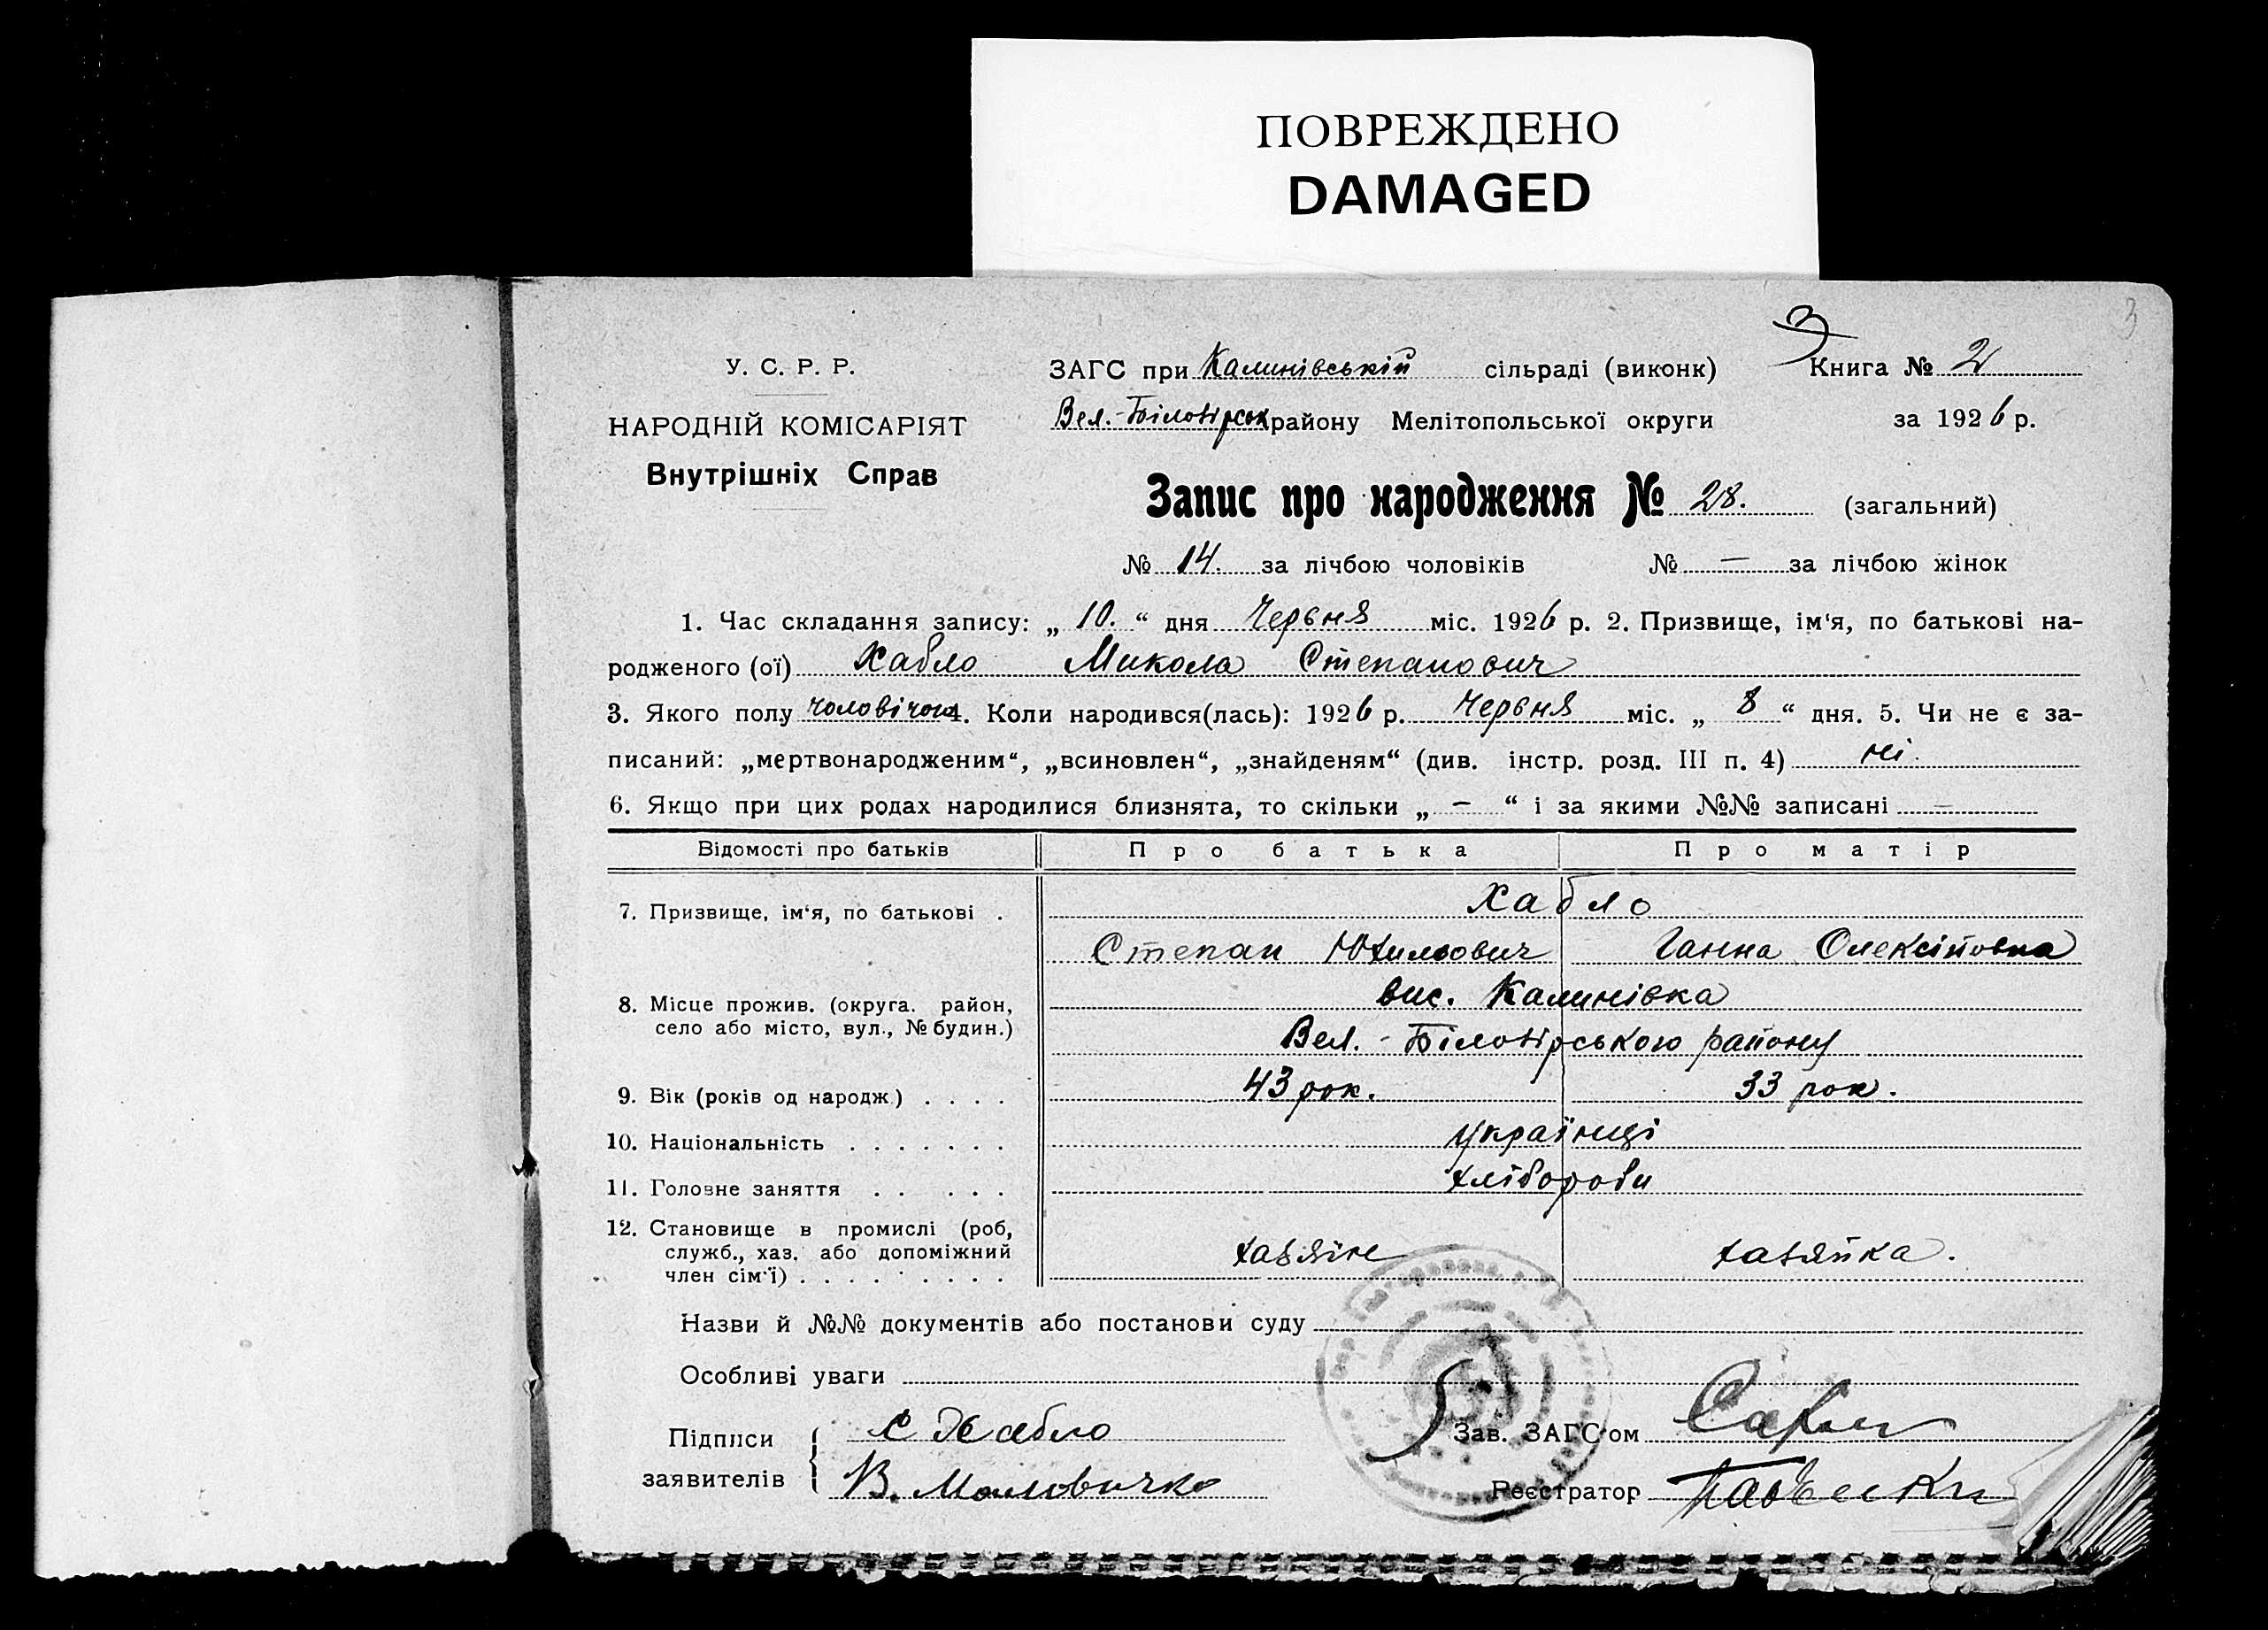 ПОВРЕЖДЕНО
DAMAGED
3
3
У. С. Р. Р.
НАРОДНІЙ КОМІСАРІЯТ
Внутрішніх Справ
ЗАГС при Калинівській сільраді (виконк) Книга № 2
Вел.-Білозірськ району Мелітопольської округи за 1926 р.
Запис про народження № 28. (загальний)
№ 14. за лічбою чоловіків № — за лічбою жінок
1. Час складання запису: „ 10. “ дня Червня міс. 1926 р. 2. Призвище, ім‘я, по батькові на-
родженого (ої) Хабло Микола Степанович
3. Якого полу чоловічого 4. Коли народився(лась): 1926 р. Червня міс. „ 8 “ дня. 5. Чи не є за-
писаний: „мертвонародженим“, „всиновлен“, „знайденям“ (див. інстр. розд. III п. 4) ні.
6. Якщо при цих родах народилися близнята, то скільки „ — “ і за якими №№ записані —
Відомості про батьків Про батька Про матір
7. Призвище, ім‘я, по батькові . Хабло
Степан Юхильович Ганна Олексіївна
8. Місце прожив. (округа. район, вис. Калинівка
село або місто, вул., № будин.) Вел.-Білозірського району
9. Вік (років од народж.) . . . . 43 рок. 33 рок.
10. Національність . . . . . . . українці
11. Головне заняття . . . . . хлібороби
12. Становище в промислі (роб,
служб., хаз. або допоміжний хазяїн хазяйка.
член сім‘ї) . . . . . . . . .
Назви й №№ документів або постанови суду
Особливі уваги
Підписи С Хабло Зав. ЗАГС‘ом
заявителів В. Маловичко Реєстратор